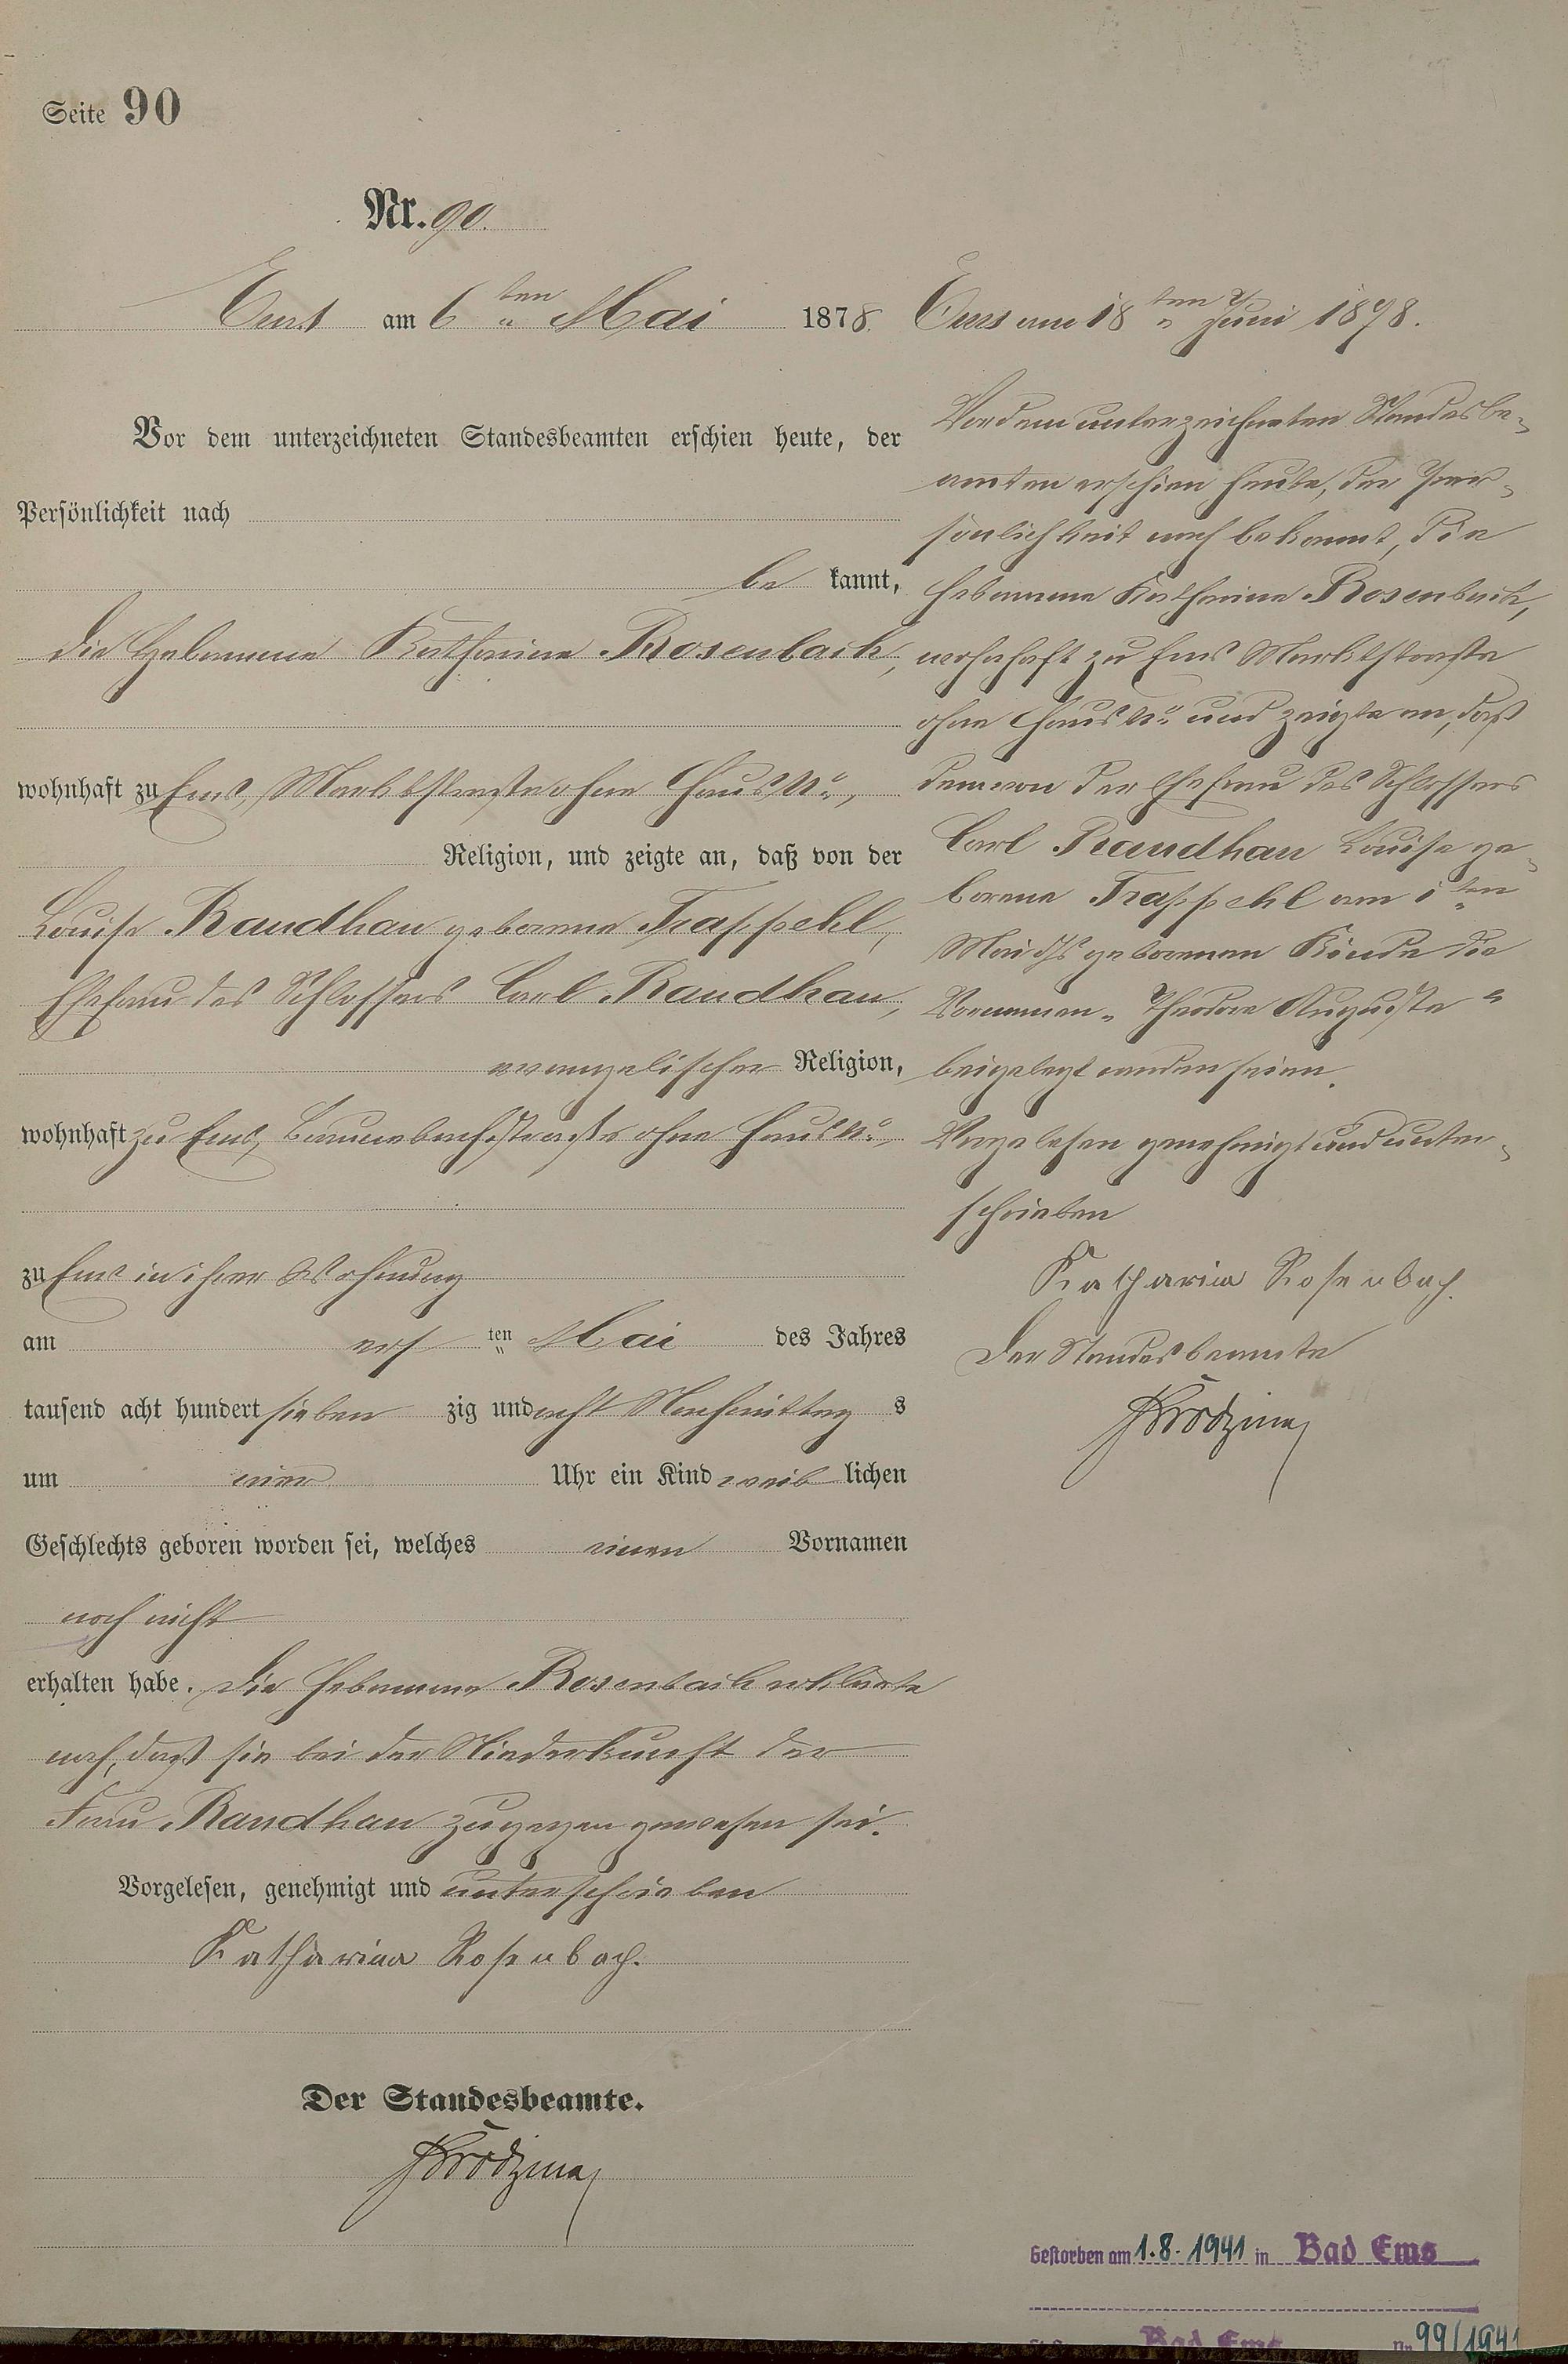 Seite 90
Nr. 90.
Ems am 6ten Mai 1878.
Vor dem unterzeichneten Standesbeamten erschien heute, der
Persönlichkeit nach
be kannt,
die Hebamme Katharina Rosenbach,
wohnhaft zu Ems, Marktstraße ohne Haus No,
Religion, und zeigte an, daß von der
Louise Raudhan geborene Trappehl,
Ehefrau des Schlossers Carl Raudhan,
evangelischer Religion,
wohnhaft zu Ems, ohne Haus No,
zu Ems in ihrer Wohnung
am ersten Mai des Jahres
tausend acht hundert sieben zig und acht Nachmittag s
um vier Uhr ein Kind weib lichen
Geschlechts geboren worden sei, welches einen Vornamen
noch nicht
erhalten habe. Die Hebamme Rosenbach erklärte
noch, daß sie bei der Niederkunft der
Frau Raudhan zugegen gewesen sei.
Vorgelesen, genehmigt und unterschrieben
Katharina Rosenbach.
Der Standesbeamte.
Ems am 18ten Juni 1878.
Vor dem unterzeichneten Standesbe-
amten erschien heute, der Per-
sönlichkeit nach bekannt, die
Hebamme Katharina Rosenbach,
wohnhaft zu Ems Marktstraße
ohne Haus No und zeigte an, daß
dem von der Ehefrau des Schlossers
Carl Raudhan Louise ge-
borene Trappehl am 1ten
Mai ds geborenen Kinde die
Vornamen "Theodore Auguste"
beigelegt worden seien.
Vorgelesen genehmigt und unter-
schrieben
Katharina Rosenbach.
Der Standesbeamte
Gestorben am 1.8.1941 in Bad Ems
Bad Ems Nr 99/1941